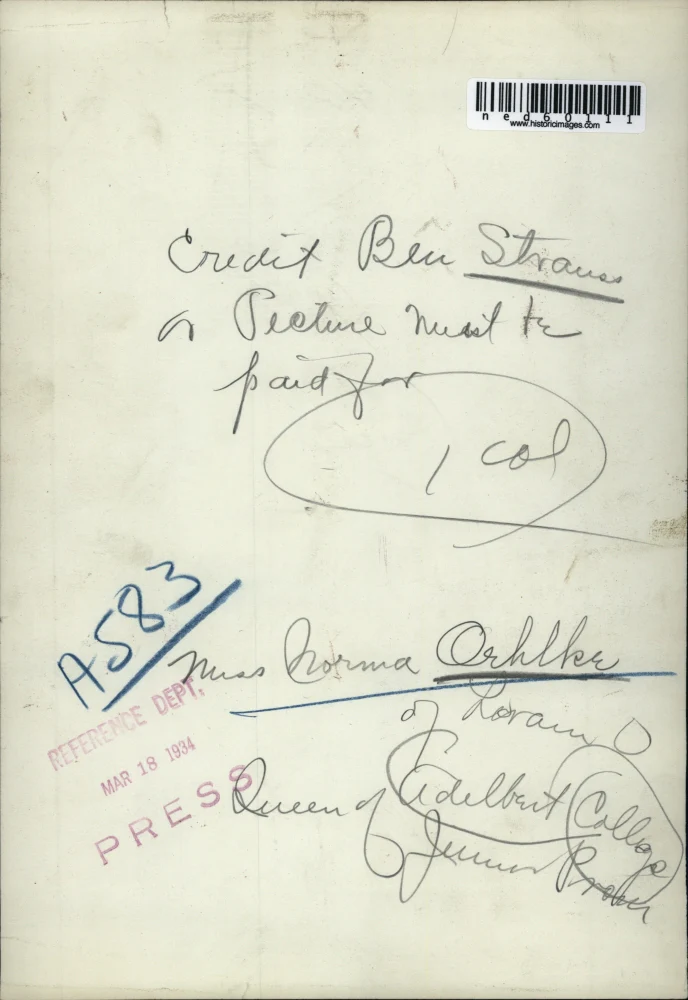 ned60111
www.historicimages.com
Credit Ben Strauss
or Picture must be
paid for
1 col
A583
Miss Norma Oehlke
of Lorain O
REFERENCE DEPT.
MAR 18 1934
PRESS
Queen of Adelbert College
Junior Prom